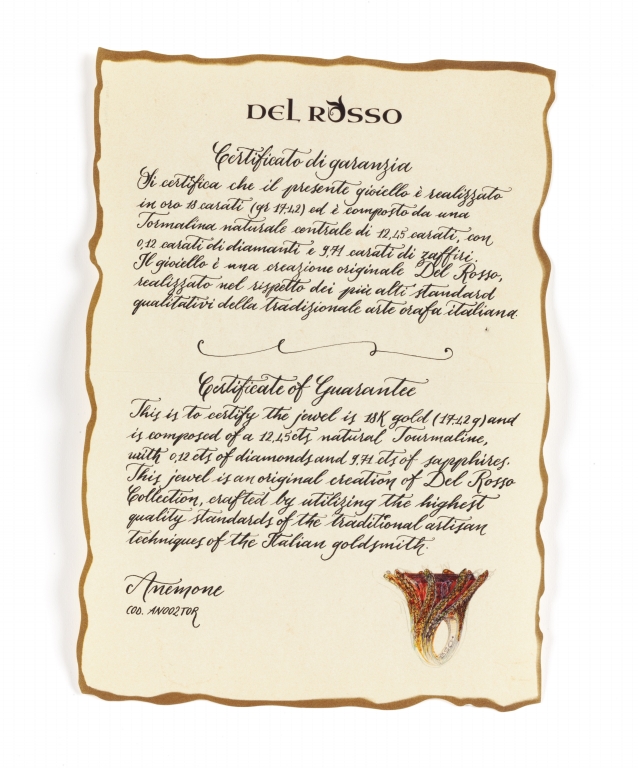 DEL ROSSO
Certificato di garanzia
Si certifica che il presente gioiello è realizzato
in oro 18 carati (gr 17,42) ed è composto da una
Tormalina naturale centrale di 12,45 carati, con
0,12 carati di diamanti e 9,71 carati di zaffiri.
Il gioiello è una creazione originale Del Rosso,
realizzato nel rispetto dei più alti standard
qualitativi della tradizionale arte orafa italiana.
Certificate of Guarantee
This is to certify the jewel is 18K gold (17,42 g) and
is composed of a 12,45 cts natural Tourmaline,
with 0,12 cts of diamonds and 9,71 cts of sapphires.
This jewel is an original creation of Del Rosso
Collection, crafted by utilizing the highest
quality standards of the traditional artisan
techniques of the Italian goldsmith.
Anemone
COD. AN002TOR